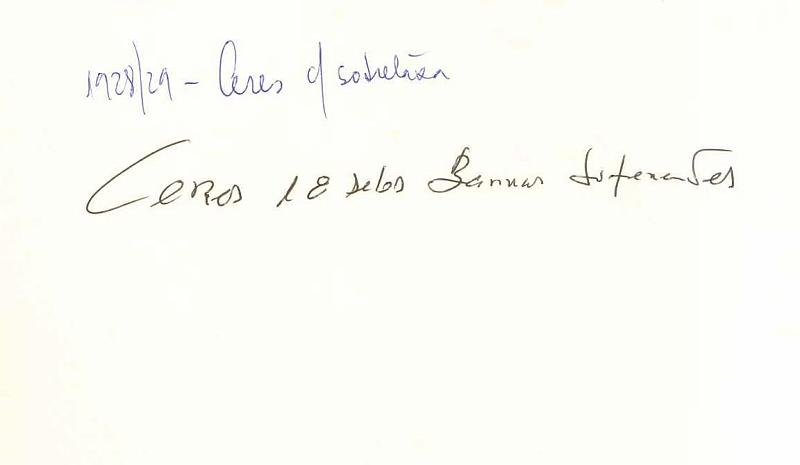 1928/29 - Ceres c/ sobretaxa
Ceres 18 selos Barras diferentes